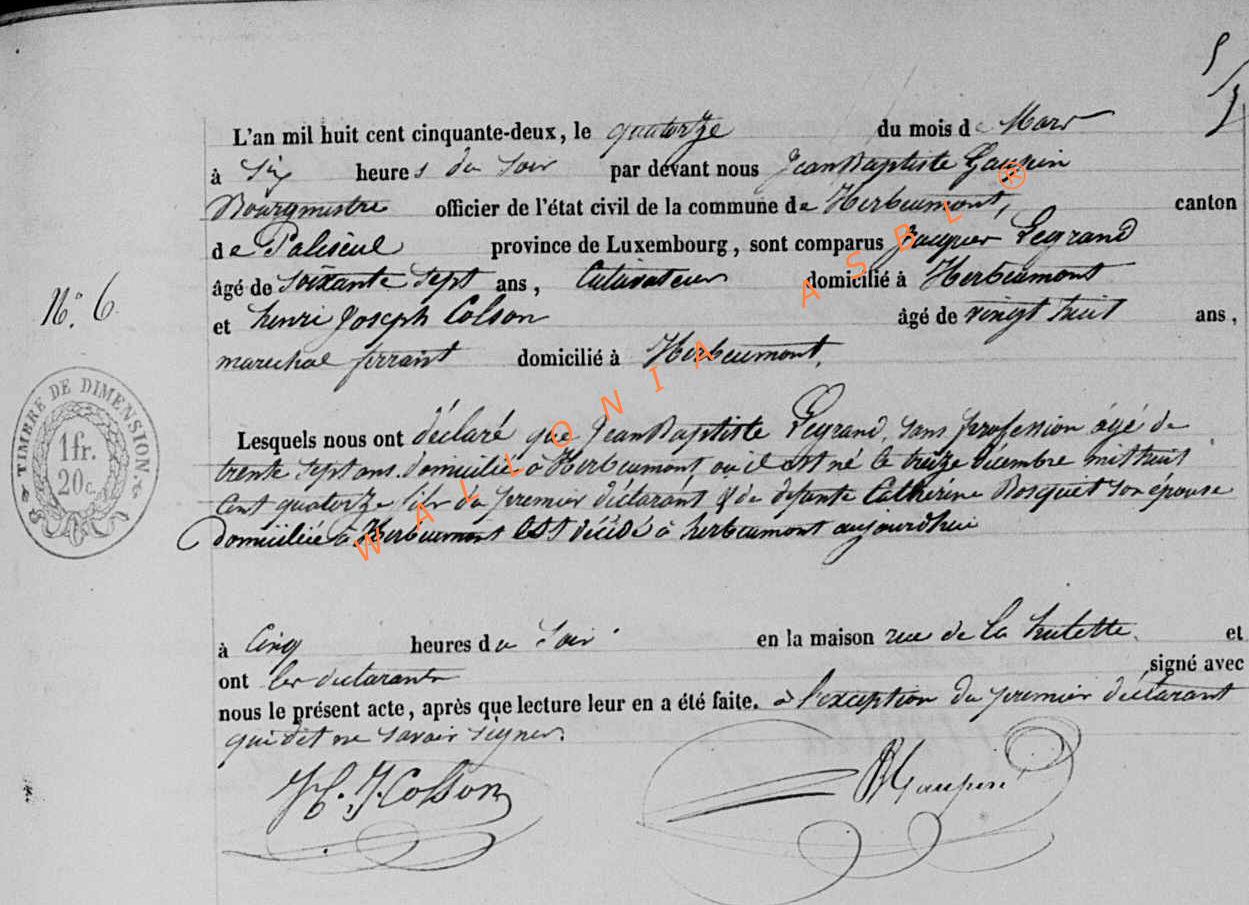 5
L'an mil huit cent cinquante-deux, le quatorze du mois de Mars
à Six heures du Soir par devant nous Jean Baptiste Gaupin
Bourgmestre officier de l'état civil de la commune de Herbeumont, canton
de Paliseul province de Luxembourg, sont comparus Jacques Legrand
âgé de soixante sept ans, Cultivateur domicilié à Herbeumont
N° 6
et henri Joseph Colson âgé de vingt huit ans,
marechal ferrant domicilié à Herbeumont.
TIMBRE DE DIMENSION.
1 fr.
20 c.
Lesquels nous ont déclaré que Jean Baptiste Legrand, sans profession âgé de
trente sept ans domicilié à Herbeumont où il est né le treize décembre mil huit
Cent quatorze fils du premier déclarant & de defunte Catherine Bosquet son épouse
domiciliée à Herbeumont est décédé à herbeumont aujourdhui
à Cinq heures du Soir en la maison rue de la hulette et
ont les déclarants signé avec
nous le présent acte, après que lecture leur en a été faite. à l'exception du premier déclarant
qui dit ne savoir signer.
H. J. Colson
Gaupin
WALLONIA ASBL ®